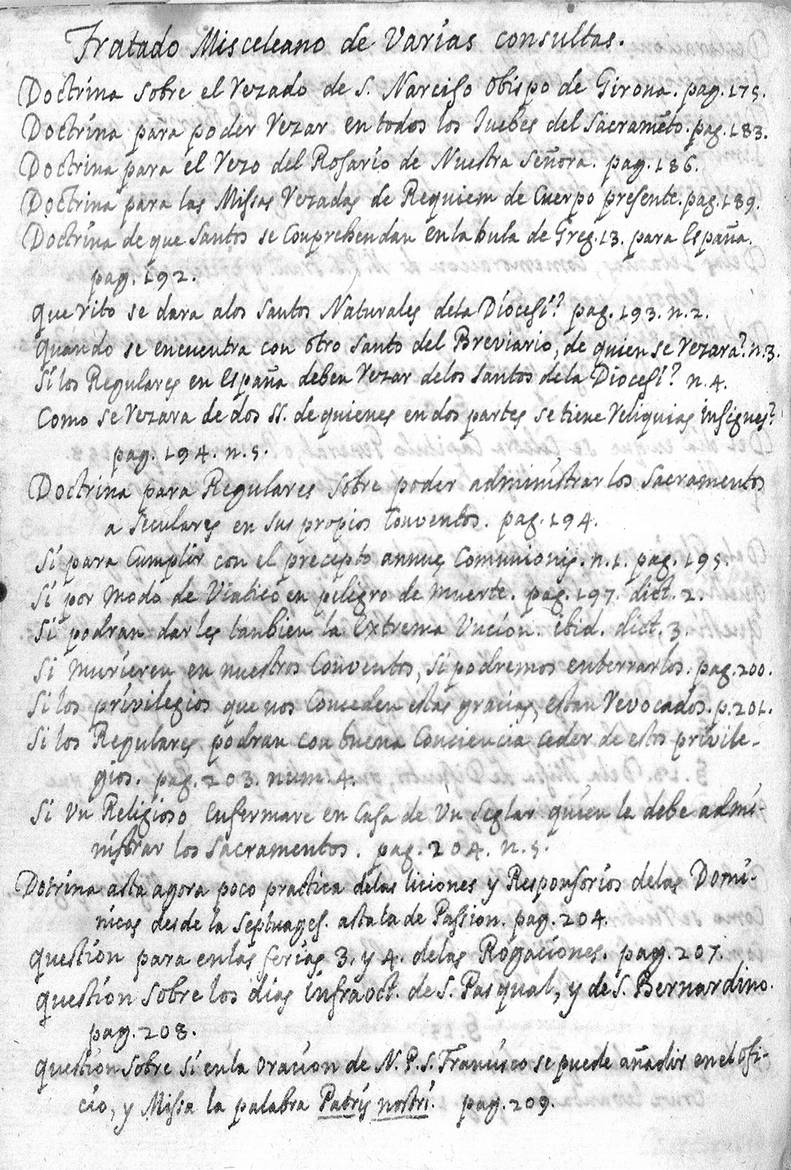 Tratado Misceleano de Varias consultas.
Doctrina sobre el Rezado de S. Narciso obispo de Girona. pag. 175.
Doctrina para poder Rezar en todos los Juebes del Sacrameto. pag. 183.
Doctrina para el Rezo del Rosario de Nuestra Señora. pag. 186.
Doctrina para las Missas Rezadas de Requiem de Cuerpo presente. pag. 189.
Doctrina de que Santos se Conprehendan en la bula de Greg. 13. para España.
pag. 192.
Que rito se dara a los Santos Naturales dela Diocesi? pag. 193. n. 2.
Quando se encuentra con otro Santo del Breviario, de quien se Rezara? n. 3.
Si los Regulares en España deben Rezar delos Santos dela Diocesi? n. 4.
Como se Rezara de dos SS. de quienes en dos partes se tiene Reliquias insignes?
pag. 194. n. 5.
Doctrina para Regulares sobre poder administrar los Sacramentos
a Seculares en sus propios Conventos. pag. 194.
Si para Cumplir con el precepto annuę Comunionis. n. 1. pag. 195.
Si por modo de Viatico en peligro de muerte. pag. 197. dict. 2.
Si podran darles tanbien la Extrema Uncion. ibid. dict. 3.
Si murieren en nuestros Conventos, si podremos enterrarlos. pag. 200.
Si los privilegios que nos Conceden estas gracias, estan Revocados. p. 201.
Si los Regulares podran con buena Conciencia ceder de estos privile-
gios. pag. 203. num. 4.
Si Un Religioso Enfermare en Casa de Un Seglar quien le debe admi-
nistrar los Sacramentos. pag. 204. n. 5.
Dotrina asta agora poco practica delas liciones y Responsorios delas Domi-
nicas desde la Septuages. asta la de Passion. pag. 204.
Question para en las ferias 3. y 4. delas Rogaciones. pag. 207.
Question Sobre los dias infraoct. de S. Pasqual, y de S. Bernardino.
pag. 208.
Question Sobre si en la Oracion de N. P. S. Francisco se puede añadir en el ofi-
cio, y Missa la palabra Patris nostri. pag. 209.